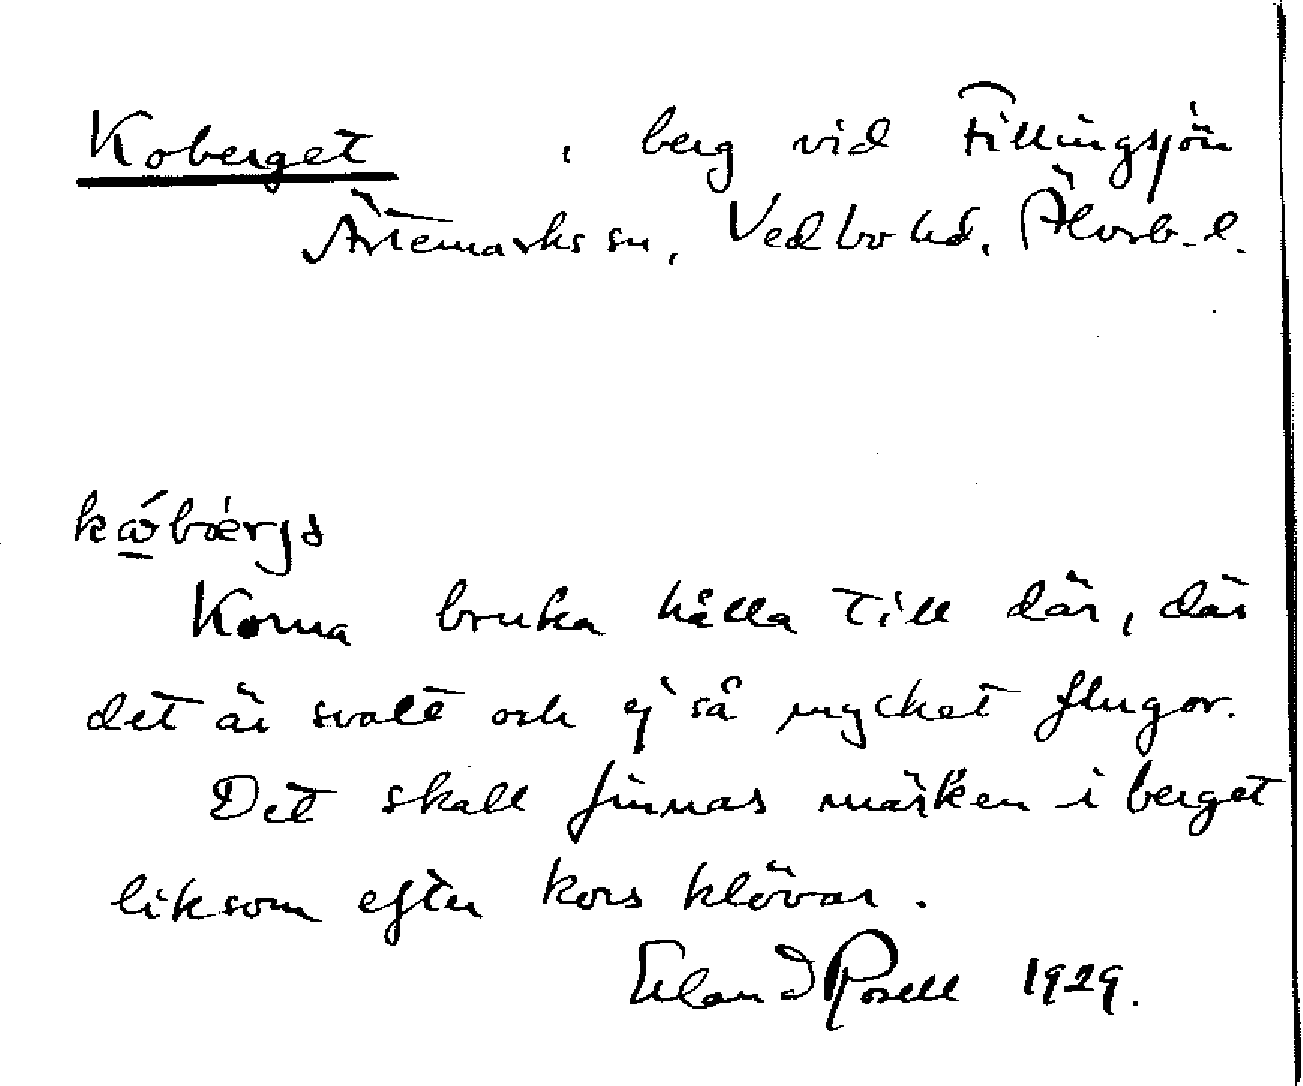 Koberget , berg vid Fillingsjön
Ärtemarks sn, Vedbo hd, Älvsb. l.
Korna bruka hålla till där, där
det är svalt och ej så mycket flugor.
Det skall finnas märken i berget
liksom efter kors klövar.
Erland Rosell 1929.